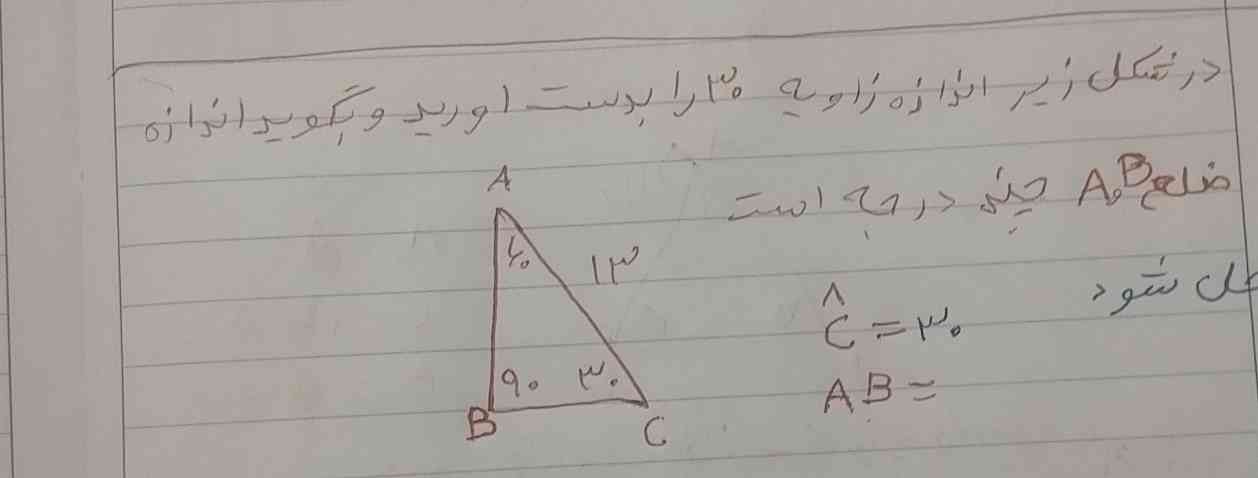 در شکل زیر اندازه زاویه ۳۰ را بدست اورید و بگویید اندازه
ضلع A,B چند درجه است
حل شود
A
۶۰
۱۳
Ĉ = ۳۰
۹۰ ۳۰
AB =
B
C